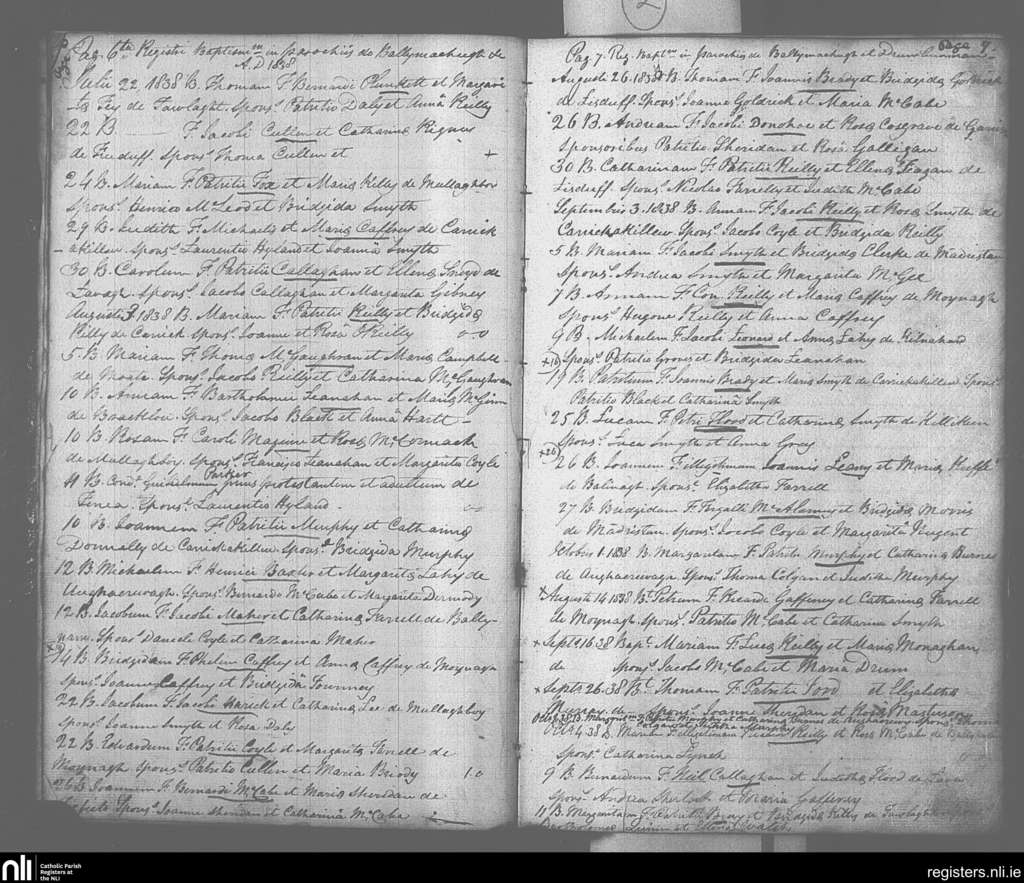 Pag. 6ta Registri Baptismm in parochiis de Ballymachugh de
A.D 1838
Julii 22 1838 B. Thomam F. Bernardi Plunkett et Margari
ta Fey de Fawlaght. Spons. Patritio Daly et Anna Reilly
22 B F. Jacobi Cullen et Catharina
de Freduff. Spons. Thoma Cullen et +
24 B. Mariam F. Patritii Fox et Maria Reilly de Mullaghboy
Spons. Henrico McLeod et Bridgida Smyth
29 B. Judith F. Michaelis et Maria Caffrey de Carrick
-akillew. Spons. Laurentio Hyland et Joanna Smyth
30 B. Carolum F. Patritii Callaghan et Ellena de
Lavagh. Spons. Jacobo Callaghan et Margarita Gibney
Augusti 3 1838 B. Mariam F. Patritii Reilly et Bridgida
Reilly de Carrick Spons. Joanne et Rosa O'Reilly 0-0
5 B. Mariam F. Thoma McGaughran et Maria Campbell
de Moate. Spons. Jacobo Reilly et Catharina McGaughran
10 B. Annam F. Bartholomei Leanahan et Maria McGinn
de Bracklin. Spons. Jacobo Blaett et Anna Hart
10 B. Rosam F. Caroli Maguire et Rosa McCormack
de Mullaghboy. Spons. Francisco Leanahan et Margarita Coyle
Parker
11 B. Cond. Guilielmum prius protestantem et adultum de
Finea. Spons. Laurentio Hyland. 0-0
10 B. Joannem F. Patritii Murphy et Catharina
Donnelly de Carrickakillew. Spons. Bridgida Murphy
12 B. Michaelem F. Henrici Baxter et Margarita Lahy de
Aughaerwagh. Spons. Bernardo McCabe et Margarita Dermody
12 B. Jacobum F. Jacobi Maher et Catharina Farrell de Bally-
nare. Spons. Daniele Coyle et Catharina Maher
14 B. Bridgidam F. Phelim Caffrey et Anna Caffrey de Moynagh
Spons. Joanne Caffrey et Bridgida
22 B. Jacobum F. Jacobi Harick et Catharina Lee de Mullaghboy
Spons. Joanne Smyth et Rosa Daly
22 B. Edvardum F. Patritii Coyle et Margarita Farrell de
Moynagh Spons. Patritio Cullen et Maria Briody 1.0
26 B. Joannem F. Bernardi McCabe et Maria Sheridan de
Spons. Joanne Sheridan et Catharina McCabe
Page 7.
Pag 7. Reg. Baptm in parochiis de Ballymachugh et Drumlumman
August 26. 1838 B. Thomam F. Joannis Brady et Bridgida Goldrick
de Lisduff. Spons. Joanne Goldrick et Maria McCabe
26 B. Andream F. Jacobi Donohoe et Rosa Cosgrave de
Sponsoribus Patritio Sheridan et Rosa Gallegan
30 B. Catharinam F. Patritii Reilly et Ellena Fagan de
Lisduff Spons. Nicolao Skelly et Judith McCabe
Septembris 3. 1838 B. Annam F. Jacobi Reilly et Rosa Smyth de
Carrickakillew Spons. Jacobo Coyle et Bridgida Reilly
5 B. Mariam F. Jacobi Smyth et Bridgida Clerke de Madristan
Spons. Andrea Smyth et Margarita McGee
7 B. Annam F. Con. Reilly et Maria Caffrey de Moynagh
Spons. Hugone Reilly et Anna Caffrey
9 B. Michaelem F. Jacobi Leonard et Anna Lahy de Kilnahard
+16 Spons. Patritio Groves et Bridgida Leanahan
19 B. Patritium F. Joannis Brady et Maria Smyth de Carrickakillew Spons.
Patritio Black et Catharina Smyth
25 B. Lucam F. Petri Flood et Catharina Smyth de Killikeen
Spons. Luca Smyth et Anna Gray
+26
26 B. Joannem F. illegitimam Joannis Leany et Maria Keeffe
de Balinagh. Spons. Elizabetha Farrell
27 B. Bridgidam F. McAlenney et Bridgida Morris
de Madristan. Spons. Jacobo Coyle et Margarita Nugent
Octobris 1. 1838 B. Margaritam F. Patritii Murphy et Catharina Burnes
de Aughaerwagh Spons. Thoma Colgan et Juditha Murphy
x Augusti 14 1838 Bt. Petrum F. Ricardi Gafferey et Catharina Farrell
de Moynagh. Spons. Patritio McCabe et Catharina Smyth
x Sept. 16. 38 Bapt. Mariam F. Luca Reilly et Maria Monaghan
de Spons. Jacobo McCabe et Maria Drum
x Sept. 26. 38 Bt. Thomam F. Patritii Ford et Elizabetha
Spons. Joanne Sheridan et Rosa Masterson
Octob. 1. 38 B. Margaritam F. Patritii Murphy et Catharina Burnes de Aughaerwagh Spons. Thoma
Colgan et Juditha Murphy
Octob. 4. 38 B. Mariam F. illegitimam Reilly et Rosa McCabe de
Spons. Catharina Lynch
9 B. Bernardum F. Neil Callaghan et Juditha Flood de Lava
Spons. Andrea Sherlock et Maria Gafferey
11 B. Margaritam F. Patritii Bray et Bridgida Reilly de Fawlaght
nli
Catholic Parish
Registers at
the NLI
registers.nli.ie